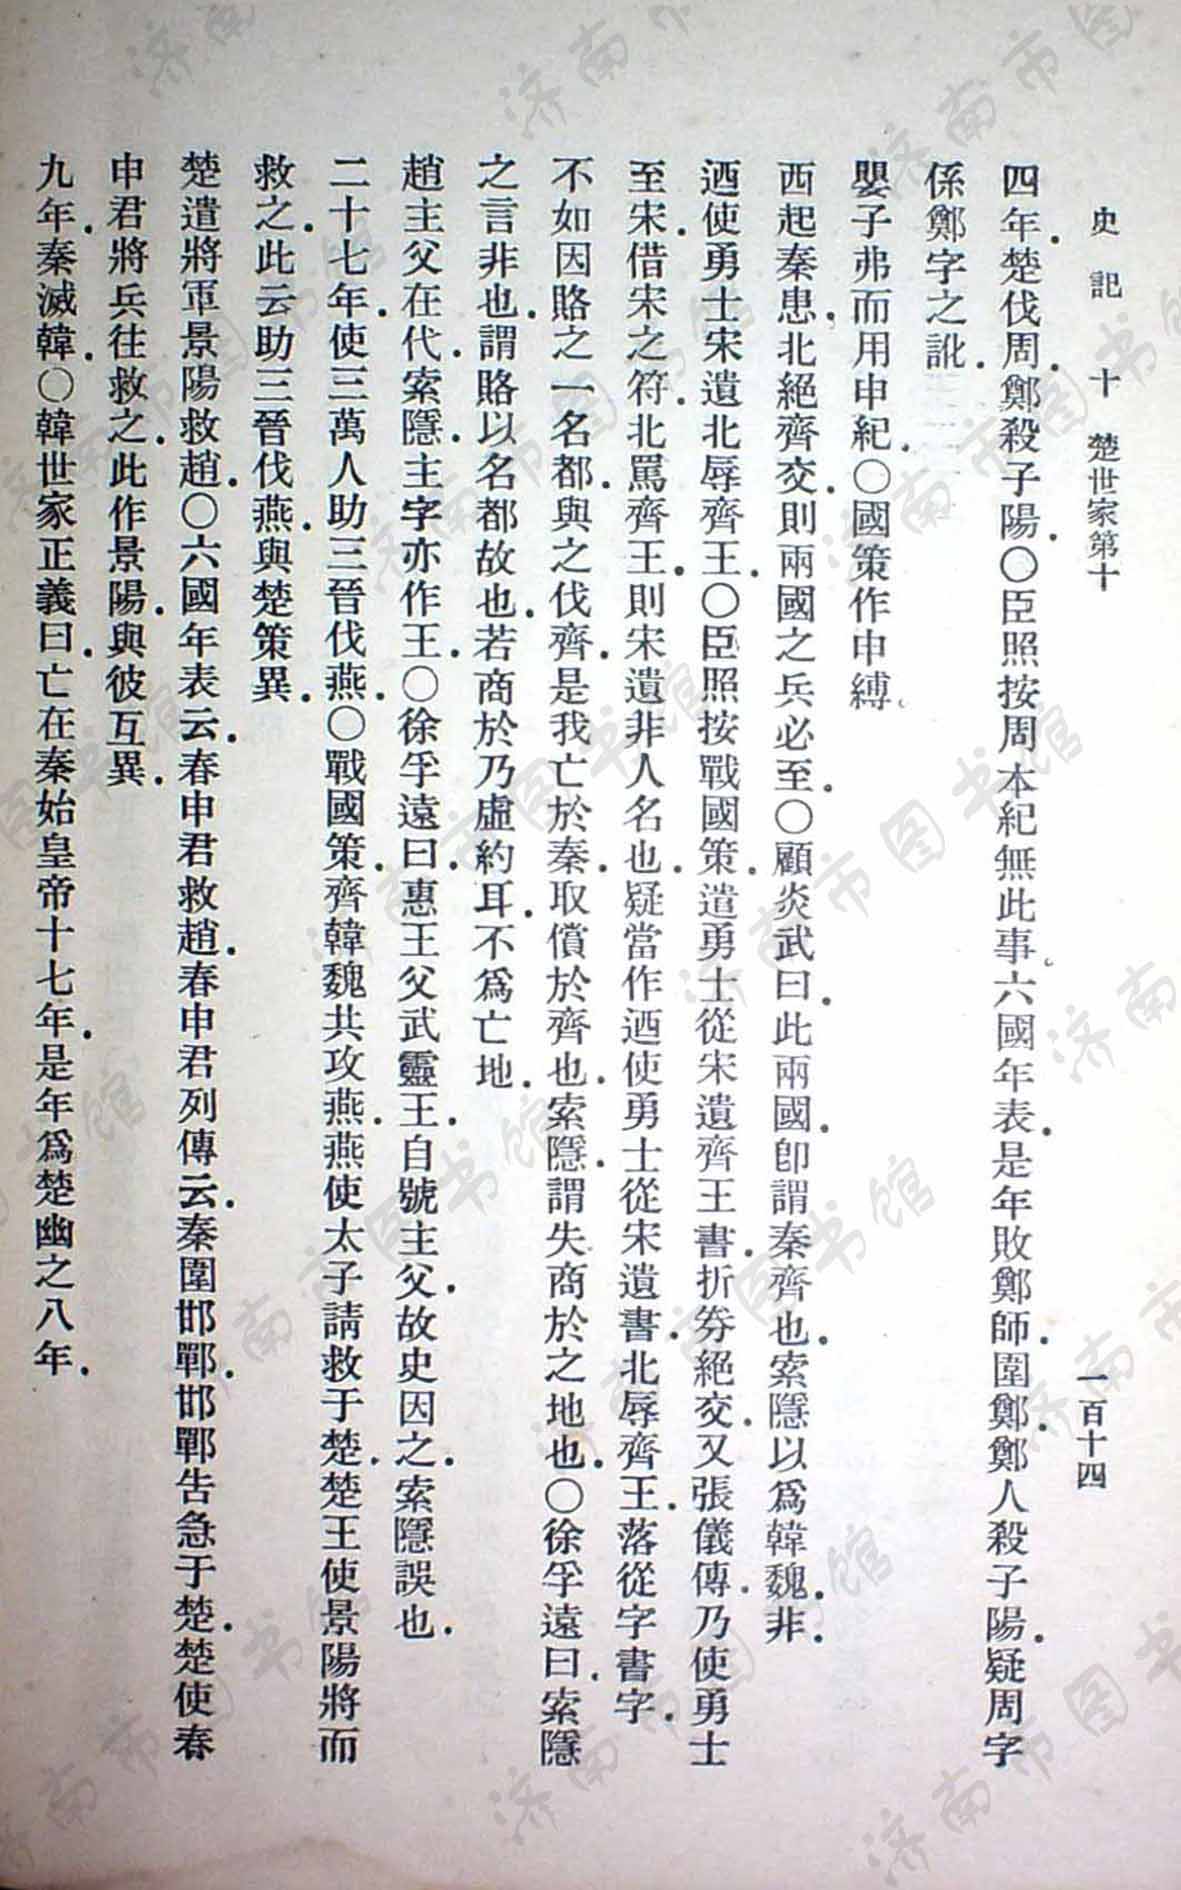 史記 十 楚世家第十 一百十四
四年.楚伐周.鄭殺子陽.〇臣照按周本紀無此事.六國年表.是年敗鄭師.圍鄭.鄭人殺子陽.疑周字
係鄭字之訛.
嬰子弗而用申紀.〇國策作申縛.
西起秦患.北絕齊交.則兩國之兵必至.〇顧炎武曰.此兩國.卽謂秦齊也.索隱以爲韓魏.非.
迺使勇士宋遺北辱齊王.〇臣照按戰國策.遣勇士從宋遺齊王書.折券絕交.又張儀傳.乃使勇士
至宋.借宋之符.北罵齊王.則宋遺非人名也.疑當作迺使勇士從宋遺書.北辱齊王.落從字書字.
不如因賂之一名都.與之伐齊.是我亡於秦.取償於齊也.索隱.謂失商於之地也.〇徐孚遠曰.索隱
之言非也.謂賂以名都故也.若商於乃虛約耳.不爲亡地.
趙主父在代.索隱.主字亦作王.〇徐孚遠曰.惠王父武靈王.自號主父.故史因之.索隱誤也.
二十七年.使三萬人助三晉伐燕.〇戰國策.齊韓魏共攻燕.燕使太子請救于楚.楚王使景陽將而
救之.此云助三晉伐燕.與楚策異.
楚遣將軍景陽救趙.〇六國年表云.春申君救趙.春申君列傳云.秦圍邯鄲.邯鄲告急于楚.楚使春
申君將兵往救之.此作景陽.與彼互異.
九年.秦滅韓.〇韓世家正義曰.亡在秦始皇帝十七年.是年爲楚幽之八年.
济南市图书馆